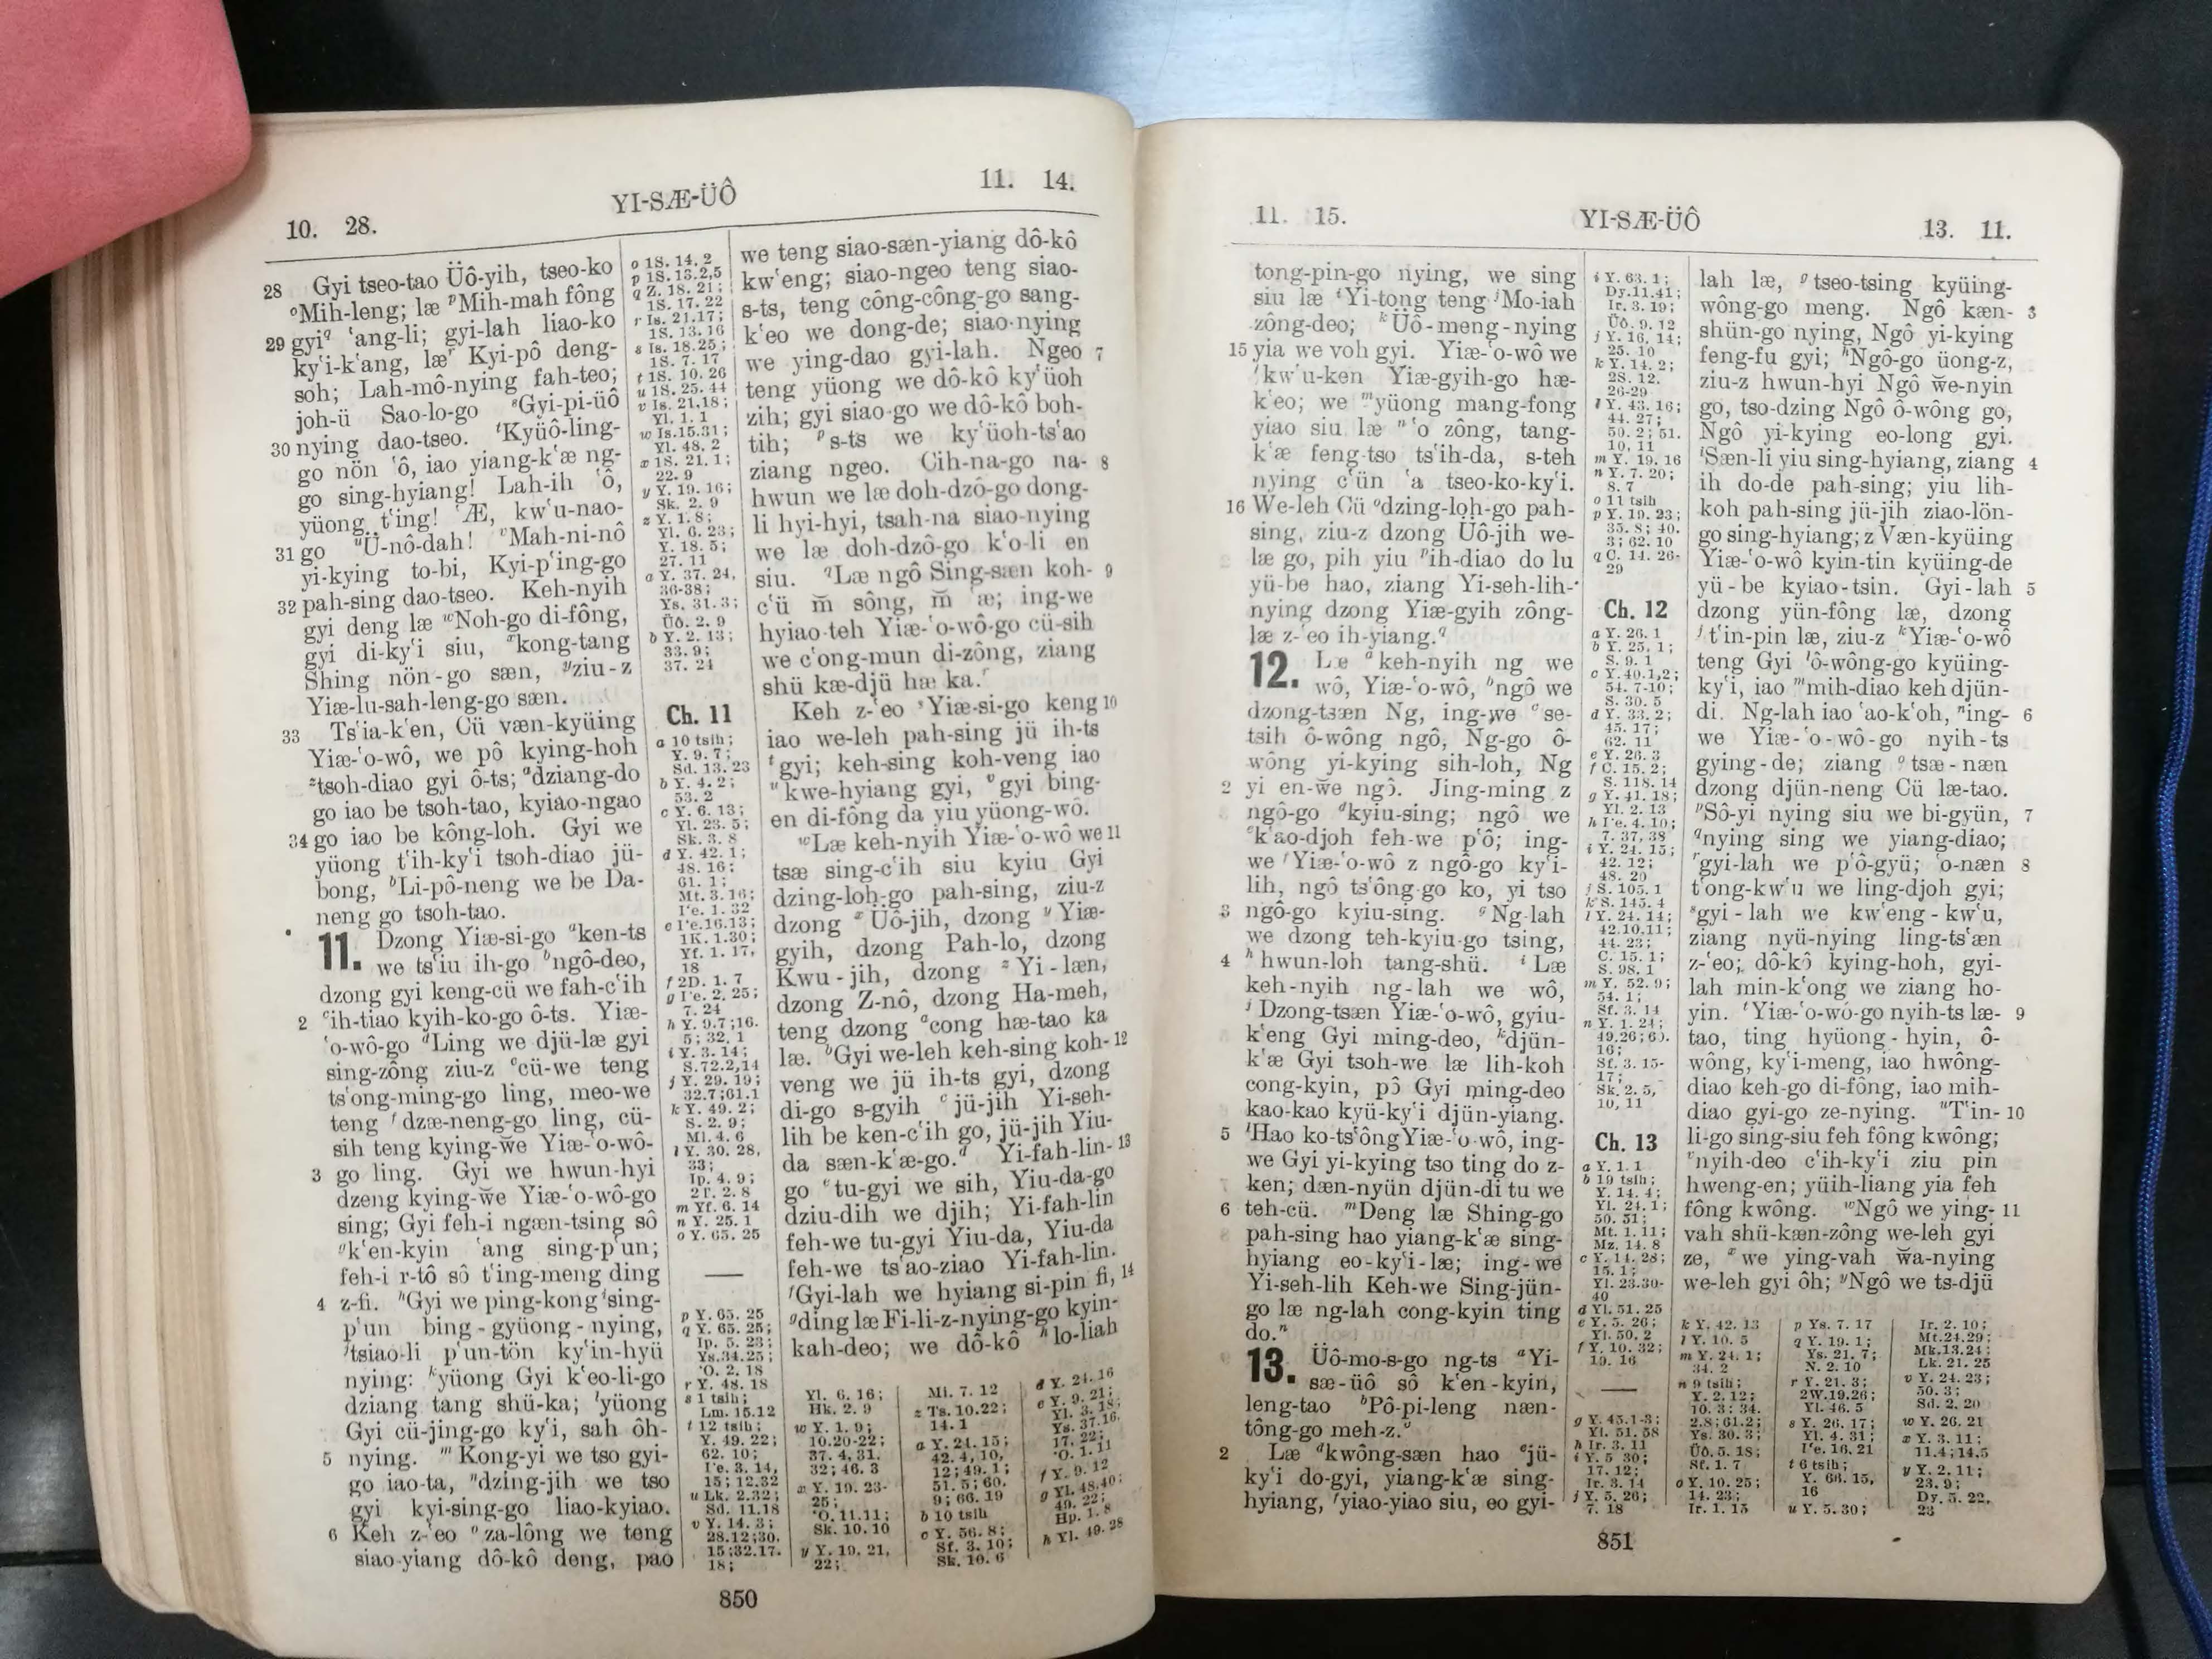 10. 28.
YI-SÆ-ÜÔ
11. 14.
28 Gyi tseo-tao Üô-yih, tseo-ko
ᵒMih-leng; læ ᵖMih-mah fông
29 gyi�q ʻang-li; gyi-lah liao-ko
kyʻi-kʻang, læʳ Kyi-pô deng-
soh; Lah-mô-nying fah-teo;
joh-ü Sao-lo-go ˢGyi-pi-üô
30 nying dao-tseo. ᵗKyüô-ling-
go nön ʻô, iao yiang-kʻæ ng-
go sing-hyiang! Lah-ih ʻô,
yüong tʻing! ʻÆ, kwʻu-nao-
31 go ᵘÜ-nô-dah! ᵛMah-ni-nô
yi-kying to-bi, Kyi-pʻing-go
32 pah-sing dao-tseo. Keh-nyih
gyi deng læ ʷNoh-go di-fông,
gyi di-kyʻi siu, ˣkong-tang
Shing nön-go sæn, ʸziu-z
Yiæ-lu-sah-leng-go sæn.
33 Tsʻia-kʻen, Cü væn-kyüing
Yiæ-ʻo-wô, we pô kying-hoh
ᶻtsoh-diao gyi ô-ts; ᵃdziang-do
go iao be tsoh-tao, kyiao-ngao
34 go iao be kông-loh. Gyi we
yüong tʻih-kyʻi tsoh-diao jü-
bong, ᵇLi-pô-neng we be Da-
neng go tsoh-tao.
11. Dzong Yiæ-si-go ᵃken-ts
we tsʻiu ih-go ᵇngô-deo,
dzong gyi keng-cü we fah-cʻih
2 ᶜih-tiao kyih-ko-go ô-ts. Yiæ-
ʻo-wô-go ᵈLing we djü-læ gyi
sing-zông ziu-z ᵉcü-we teng
tsʻong-ming-go ling, meo-we
teng ᶠdzæ-neng-go ling, cü-
sih teng kying-w̆e Yiæ-ʻo-wô-
3 go ling. Gyi we hwun-hyi
dzeng kying-w̆e Yiæ-ʻo-wô-go
sing; Gyi feh-i ngæn-tsing sô
ᵍkʻen-kyin ʻang sing-pʻun;
feh-i r-tô sô tʻing-meng ding
4 z-fi. ʰGyi we ping-kong ⁱsing-
pʻun bing-gyüong-nying,
ʲtsiao-li pʻun-tön kyʻin-hyü
nying: ᵏyüong Gyi kʻeo-li-go
dziang tang shü-ka; ˡyüong
Gyi cü-jing-go kyʻi, sah ôh-
5 nying. ᵐKong-yi we tso gyi-
go iao-ta, ⁿdzing-jih we tso
gyi kyi-sing-go liao-kyiao.
6 Keh z-ʻeo ᵒza-lông we teng
siao-yiang dô-kô deng, pao
o 1S. 14. 2
p 1S. 13.2,5
q Z. 18. 21;
1S. 17. 22
r Is. 21.17;
1S. 13. 16
s Is. 18.25;
1S. 7. 17
t 1S. 10. 26
u 1S. 25. 44
v Is. 21.18;
Yl. 1. 1
w Is.15.31;
Yl. 48. 2
x 1S. 21. 1;
22. 9
y Y. 10. 16;
Sk. 2. 9
z Y. 1. 8;
Yl. 6. 23;
Y. 18. 5;
27. 11
a Y. 37. 24,
36-38;
Ys. 31. 3;
Üô. 2. 9
b Y. 2. 13;
33. 9;
37. 24
Ch. 11
a 10 tsih;
Y. 9. 7;
Sd. 13. 23
b Y. 4. 2;
53. 2
c Y. 6. 13;
Yl. 23. 5;
Sk. 3. 8
d Y. 42. 1;
48. 16;
61. 1;
Mt. 3. 16;
1K. 1.30;
Yf. 1. 17,
18
f 2D. 1. 7
7. 24
h Y. 9.7;16.
5; 32. 1
i Y. 3. 14;
S.72.2,14
j Y. 29. 19;
32.7;61.1
k Y. 49. 2;
S. 2. 9;
Ml. 4. 6
l Y. 30. 28,
33;
m Yf. 6. 14
n Y. 25. 1
o Y. 65. 25
p Y. 65. 25
q Y. 65. 25;
Ip. 5. 23;
Ys.34.25;
ʻO. 2. 18
r Y. 48. 18
s 1 tsih;
Lm. 15.12
t 12 tsih;
Y. 49. 22;
62. 10;
15; 12.32
u Lk. 2.32;
Sd. 11.18
v Y. 14. 3;
28.12;30.
15;32.17.
18;
we teng siao-sæn-yiang dô-kô
kwʻeng; siao-ngeo teng siao-
s-ts, teng công-công-go sang-
kʻeo we dong-de; siao-nying
we ying-dao gyi-lah. Ngeo 7
teng yüong we dô-kô kyʻüoh
zih; gyi siao-go we dô-kô boh-
tih; ᵖs-ts we kyʻüoh-tsʻao
ziang ngeo. Cih-na-go na- 8
hwun we læ doh-dzô-go dong-
li hyi-hyi, tsah-na siao-nying
we læ doh-dzô-go kʻo-li en
siu. �qLæ ngô Sing-sæn koh- 9
cʻü m̆ sông, m̆ ʻæ; ing-we
hyiao-teh Yiæ-ʻo-wô-go cü-sih
we cʻong-mun di-zông, ziang
shü kæ-djü hæ ka.ʳ
Keh z-ʻeo ˢYiæ-si-go keng 10
iao we-leh pah-sing jü ih-ts
ᵗgyi; keh-sing koh-veng iao
ᵘkwe-hyiang gyi, ᵛgyi bing-
en di-fông da yiu yüong-wô.
ʷLæ keh-nyih Yiæ-ʻo-wô we 11
tsæ sing-cʻih siu kyiu Gyi
dzing-loh-go pah-sing, ziu-z
dzong ˣÜô-jih, dzong ʸYiæ-
gyih, dzong Pah-lo, dzong
Kwu-jih, dzong ᶻYi-læn,
dzong Z-nô, dzong Ha-meh,
teng dzong ᵃcong hæ-tao ka
læ. ᵇGyi we-leh keh-sing koh- 12
veng we jü ih-ts gyi, dzong
di-go s-gyih ᶜjü-jih Yi-seh-
lih be ken-cʻih go, jü-jih Yiu-
da sæn-kʻæ-go.ᵈ Yi-fah-lin- 13
go ᵉtu-gyi we sih, Yiu-da-go
dziu-dih we djih; Yi-fah-lin
feh-we tu-gyi Yiu-da, Yiu-da
feh-we tsʻao-ziao Yi-fah-lin.
ᶠGyi-lah we hyiang si-pin fi, 14
ᵍding læ Fi-li-z-nying-go kyin-
kah-deo; we dô-kô ʰlo-liah
Yl. 6. 16;
Hk. 2. 9
w Y. 1. 9;
10.20-22;
37. 4,31.
32; 46. 3
x Y. 19. 23-
25;
ʻO. 11.11;
Sk. 10. 10
y Y. 19. 21,
22;
Mi. 7. 12
z Ts. 10.22;
14. 1
a Y. 24. 15;
42. 4, 10,
12; 49. 1;
51. 5; 60.
9; 66. 19
b 10 tsih
c Y. 56. 8;
Sf. 3. 10;
Sk. 10. 6
d Y. 24. 16
e Y. 9. 21;
Yl. 3. 18;
Ys. 37.16.
17. 22;
ʻO. 1. 11
f Y. 9. 12
g Yl. 48.40;
49. 22;
Hp. 1. 8
h Yl. 49. 28
850
11. 15.
YI-SÆ-ÜÔ
13. 11.
tong-pin-go nying, we sing
siu læ ⁱYi-tong teng ʲMo-iah
zông-deo; ᵏÜô-meng-nying
15 yia we voh gyi. Yiæ-ʻo-wô we
ˡkwʻu-ken Yiæ-gyih-go hæ-
kʻeo; we ᵐyüong mang-fong
yiao siu læ ⁿʻo zông, tang-
kʻæ feng-tso tsʻih-da, s-teh
nying cʻün ʻa tseo-ko-kyʻi.
16 We-leh Cü ᵒdzing-loh-go pah-
sing, ziu-z dzong Üô-jih we-
læ go, pih yiu ᵖih-diao do lu
yü-be hao, ziang Yi-seh-lih-
nying dzong Yiæ-gyih zông-
læ z-ʻeo ih-yiang.�q
12. Læ ᵃkeh-nyih ng we
wô, Yiæ-ʻo-wô, ᵇngô we
dzong-tsæn Ng, ing-we ᶜse-
tsih ô-wông ngô, Ng-go ô-
wông yi-kying sih-loh, Ng
2 yi en-w̆e ngô. Jing-ming z
ngô-go ᵈkyiu-sing; ngô we
ᵉkʻao-djoh feh-we pʻô; ing-
we ᶠYiæ-ʻo-wô z ngô-go kyʻi-
lih, ngô tsʻông-go ko, yi tso
3 ngô-go kyiu-sing. ᵍNg-lah
we dzong teh-kyiu-go tsing,
4 ʰhwun-loh tang-shü. ⁱLæ
keh-nyih ng-lah we wô,
ʲDzong-tsæn Yiæ-ʻo-wô, gyiu-
kʻeng Gyi ming-deo, ᵏdjün-
kʻæ Gyi tsoh-we læ lih-koh
cong-kyin, pô Gyi ming-deo
kao-kao kyü-kyʻi djün-yiang.
5 ˡHao ko-tsʻông Yiæ-ʻo-wô, ing-
we Gyi yi-kying tso ting do z-
ken; dæn-nyün djün-di tu we
6 teh-cü. ᵐDeng læ Shing-go
pah-sing hao yiang-kʻæ sing-
hyiang eo-kyʻi-læ; ing-we
Yi-seh-lih Keh-we Sing-jün-
go læ ng-lah cong-kyin ting
do.ⁿ
13. Üô-mo-s-go ng-ts ᵃYi-
sæ-üô sô kʻen-kyin,
leng-tao ᵇPô-pi-leng næn-
tông-go meh-z.ᶜ
2 Læ ᵈkwông-sæn hao ᵉjü-
kyʻi do-gyi, yiang-kʻæ sing-
hyiang, ᶠyiao-yiao siu, eo gyi-
i Y. 63. 1;
Dy.11.41;
Ir. 3. 19;
Üô. 9. 12
j Y. 16, 14;
25. 10
k Y. 14. 2;
2S. 12.
26-29
l Y. 43. 16;
44. 27;
50. 2; 51.
10, 11
m Y. 19. 16
n Y. 7. 20;
8. 7
o 11 tsih
p Y. 19. 23;
35. 8; 40.
3; 62. 10
q C. 14. 26-
29
Ch. 12
a Y. 26. 1
b Y. 25. 1;
S. 9. 1
c Y.40.1,2;
54. 7-10;
S. 30. 5
d Y. 33. 2;
45. 17;
62. 11
e Y. 26. 3
f C. 15. 2;
S. 118. 14
g Y. 41. 18;
Yl. 2. 13
7. 37, 38
i Y. 24. 15;
42. 12;
48. 20
j S. 105. 1
k S. 145. 4
l Y. 24. 14;
42.10,11;
44. 23;
C. 15. 1;
S. 98. 1
m Y. 52. 9;
54. 1;
Sf. 3. 14
n Y. 1. 24;
16;
Sf. 3. 15-
17;
Sk. 2. 5,
10, 11
Ch. 13
a Y. 1. 1
b 19 tsih;
Y. 14. 4;
Yl. 24. 1;
50. 51;
Mt. 1. 11;
Mz. 14. 8
c Y. 14. 28;
15. 1;
Yl. 23.30-
40
d Yl. 51. 25
e Y. 5. 26;
Yl. 50. 2
f Y. 10. 32;
19. 16
g Y. 45.1-3;
Yl. 51. 58
h Ir. 3. 11
i Y. 5 30;
17. 12;
Ir. 3. 14
j Y. 5. 26;
7. 18
lah læ, ᵍtseo-tsing kyüing-
wông-go meng. Ngô kæn- 3
shün-go nying, Ngô yi-kying
feng-fu gyi; ʰNgô-go üong-z,
ziu-z hwun-hyi Ngô w̆e-nyin
go, tso-dzing Ngô ô-wông go,
Ngô yi-kying eo-long gyi.
ⁱSæn-li yiu sing-hyiang, ziang 4
ih do-de pah-sing; yiu lih-
koh pah-sing jü-jih ziao-lön-
go sing-hyiang; z Væn-kyüing
Yiæ-ʻo-wô kyin-tin kyüing-de
yü-be kyiao-tsin. Gyi-lah 5
dzong yün-fông læ, dzong
ʲtʻin-pin læ, ziu-z ᵏYiæ-ʻo-wô
teng Gyi ˡô-wông-go kyüing-
kyʻi, iao ᵐmih-diao keh djün-
di. Ng-lah iao ʻao-kʻoh, ⁿing- 6
we Yiæ-ʻo-wô-go nyih-ts
gying-de; ziang ᵒtsæ-næn
dzong djün-neng Cü læ-tao.
ᵖSô-yi nying siu we bi-gyün, 7
�qnying sing we yiang-diao;
ʳgyi-lah we pʻô-gyü; ʻo-næn 8
tʻong-kwʻu we ling-djoh gyi;
ˢgyi-lah we kwʻeng-kwʻu,
ziang nyü-nying ling-tsʻæn
z-ʻeo; dô-kô kying-hoh, gyi-
lah min-kʻong we ziang ho-
yin. ᵗYiæ-ʻo-wô-go nyih-ts læ- 9
tao, ting hyüong-hyin, ô-
wông, kyʻi-meng, iao hwông-
diao keh-go di-fông, iao mih-
diao gyi-go ze-nying. ᵘTʻin- 10
li-go sing-siu feh fông kwông;
ᵛnyih-deo cʻih-kyʻi ziu pin
hweng-en; yüih-liang yia feh
fông kwông. ʷNgô we ying- 11
vah shü-kæn-zông we-leh gyi
ze, ˣwe ying-vah w̆a-nying
we-leh gyi ôh; ʸNgô we ts-djü
k Y. 42. 13
l Y. 10. 5
m Y. 24. 1;
34. 2
n 9 tsih;
Y. 2. 12;
10. 3; 34.
2.8; 61.2;
Ys. 30. 3;
Üô. 5. 18;
Sf. 1. 7
o Y. 10. 25;
14. 23;
Ir. 1. 15
p Ys. 7. 17
q Y. 19. 1;
Ys. 21. 7;
N. 2. 10
r Y. 21. 3;
2W.19.26;
Yl. 46. 5
s Y. 26. 17;
Yl. 4. 31;
t 6 tsih;
Y. 66. 15,
16
u Y. 5. 30;
Ir. 2. 10;
Mt.24.29;
Mk.13.24;
Lk. 21. 25
v Y. 24. 23;
50. 3;
Sd. 2. 20
w Y. 26. 21
x Y. 3. 11;
11.4;14.5
y Y. 2. 11;
23. 9;
Dy. 5. 22,
23
851